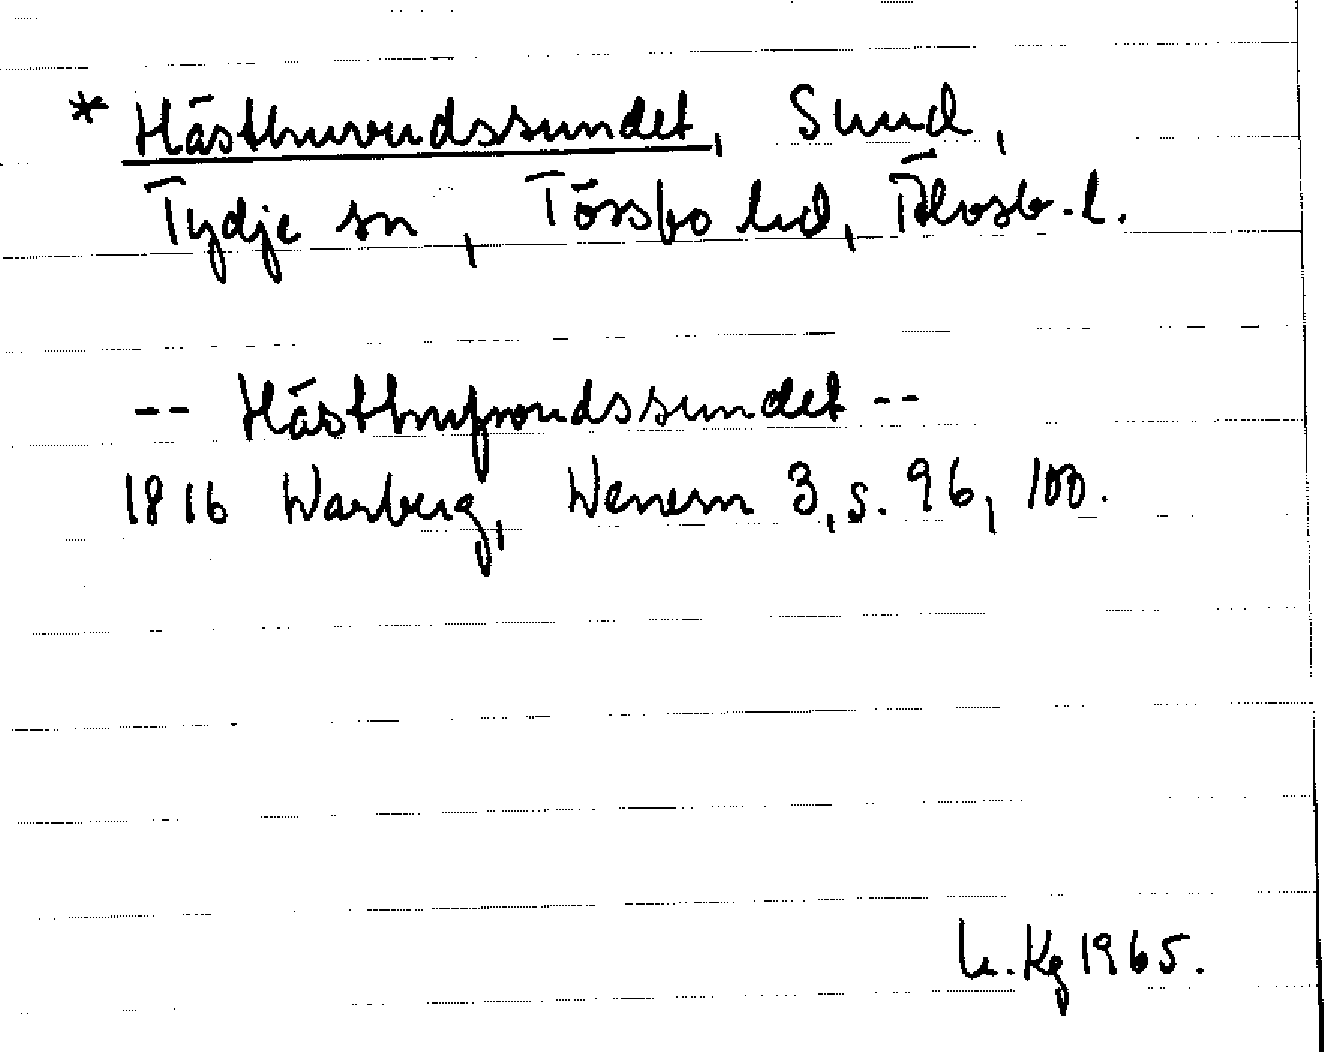 * Hästhuvudssundet, Sund,
Tydje sn, Tössbo hd, Älvsb. l.
-- Hästhufvudssundet --
1816 Warberg, Wenern 3, s. 96, 100.
Kg 1965.